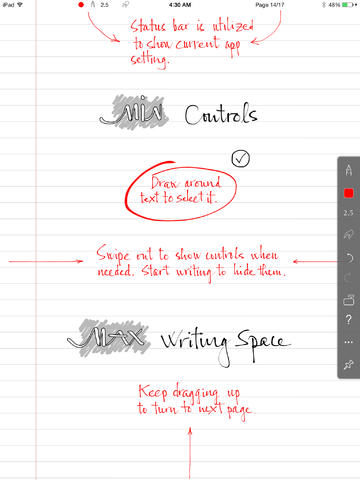 iPad 2.5 4:30 AM Page 14/17 48%
Status bar is utilized
to show current app
setting.
Min Controls
Draw around
text to select it.
2.5
Swipe out to show controls when
needed. Start writing to hide them.
?
Max Writing Space
Keep dragging up
to turn to next page